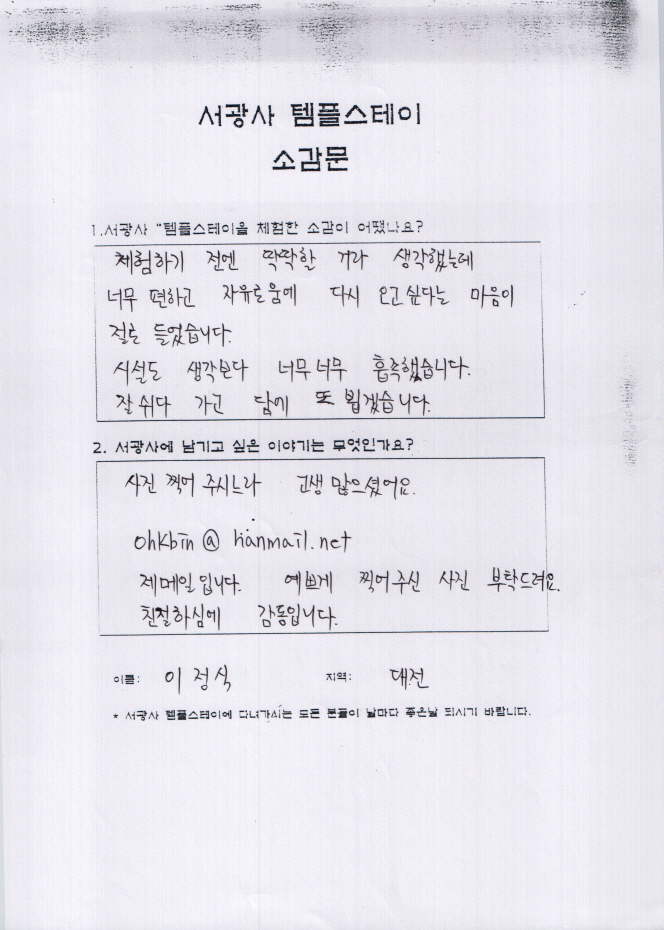 서광사 템플스테이
소감문
1.서광사 "템플스테이을 체험한 소감이 어땠나요?
체험하기 전엔 딱딱할 거라 생각했는데
너무 편하고 자유로움에 다시 오고싶다는 마음이
절로 들었습니다.
시설도 생각보다 너무너무 흡족했습니다.
잘 쉬다 가고 담에 또 뵙겠습니다.
2. 서광사에 남기고 싶은 이야기는 무엇인가요?
사진 찍어 주시느라 고생 많으셨어요.
ohkbin@hanmail.net
제메일입니다. 예쁘게 찍어주신 사진 부탁드려요.
친절하심에 감동입니다.
이름: 이정식 지역: 대전
* 서광사 템플스테이에 다녀가시는 모든 분들이 날마다 좋은날 되시기 바랍니다.